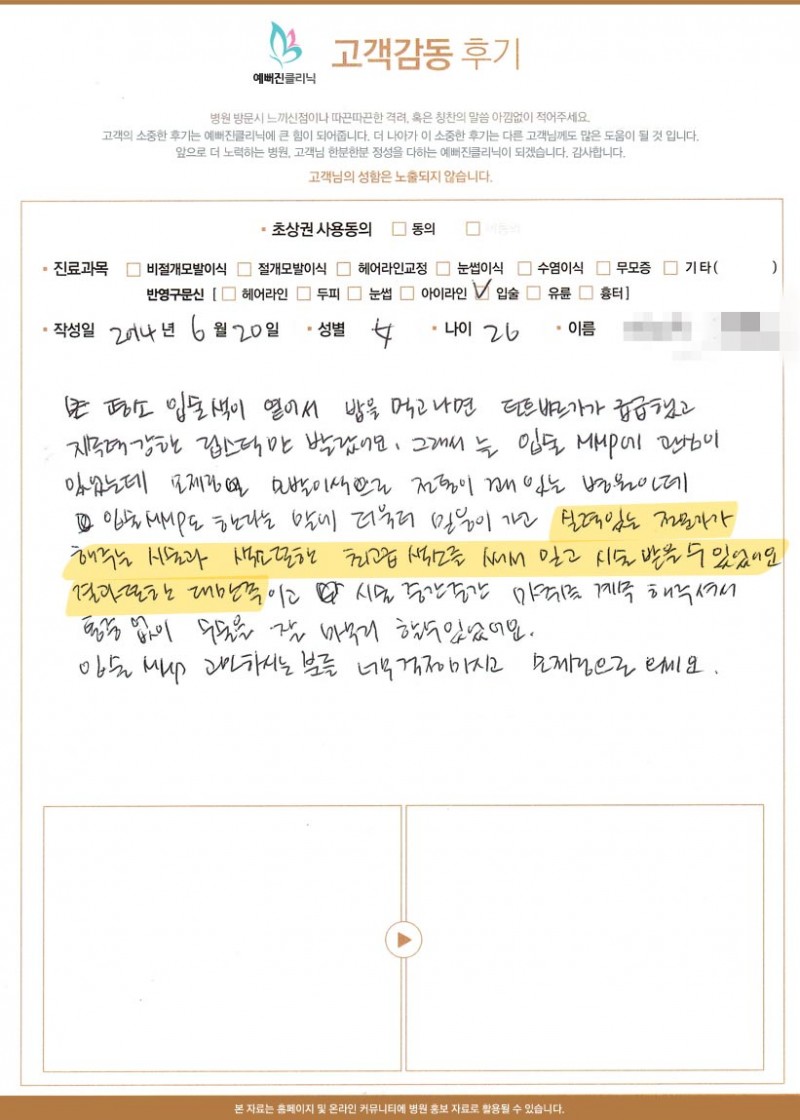 예뻐진클리닉
고객감동 후기
병원 방문시 느끼신점이나 따끈따끈한 격려, 혹은 칭찬의 말씀 아낌없이 적어주세요.
고객의 소중한 후기는 예뻐진클리닉에 큰 힘이 되어줍니다. 더 나아가 이 소중한 후기는 다른 고객님께도 많은 도움이 될 것 입니다.
앞으로 더 노력하는 병원, 고객님 한분한분 정성을 다하는 예뻐진클리닉이 되겠습니다. 감사합니다.
고객님의 성함은 노출되지 않습니다.
• 초상권 사용동의 □ 동의 □
• 진료과목 □ 비절개모발이식 □ 절개모발이식 □ 헤어라인교정 □ 눈썹이식 □ 수염이식 □ 무모증 □ 기타( )
반영구문신 [ □ 헤어라인 □ 두피 □ 눈썹 □ 아이라인 ☑ 입술 □ 유륜 □ 흉터 ]
• 작성일 2014년 6월 20일 • 성별 女 • 나이 26 • 이름
평소 입술색이 옅어서 밥을 먹고나면 틴트바르기가 급급했고
강한 립스틱만 발랐어요. 그래서 늘 입술 MMP에 관심이
있었는데 모제림은 모발이식으로 전통이 꽤 있는 병원인데
입술MMP도 한다는 말에 더욱더 믿음이 가고 실력있는 전문가가
해주는 시술과 색소또한 최고급 색소를 써서 믿고 시술 받을 수 있었어요
결과또한 대만족이고 시술 중간중간 마취를 계속 해주셔서
통증 없이 시술을 잘 마무리 할수있었어요.
입술 MMP 고민하시는 분들 너무걱정마시고 모제림으로 오세요.
본 자료는 홈페이지 및 온라인 커뮤니티에 병원 홍보 자료로 활용될 수 있습니다.